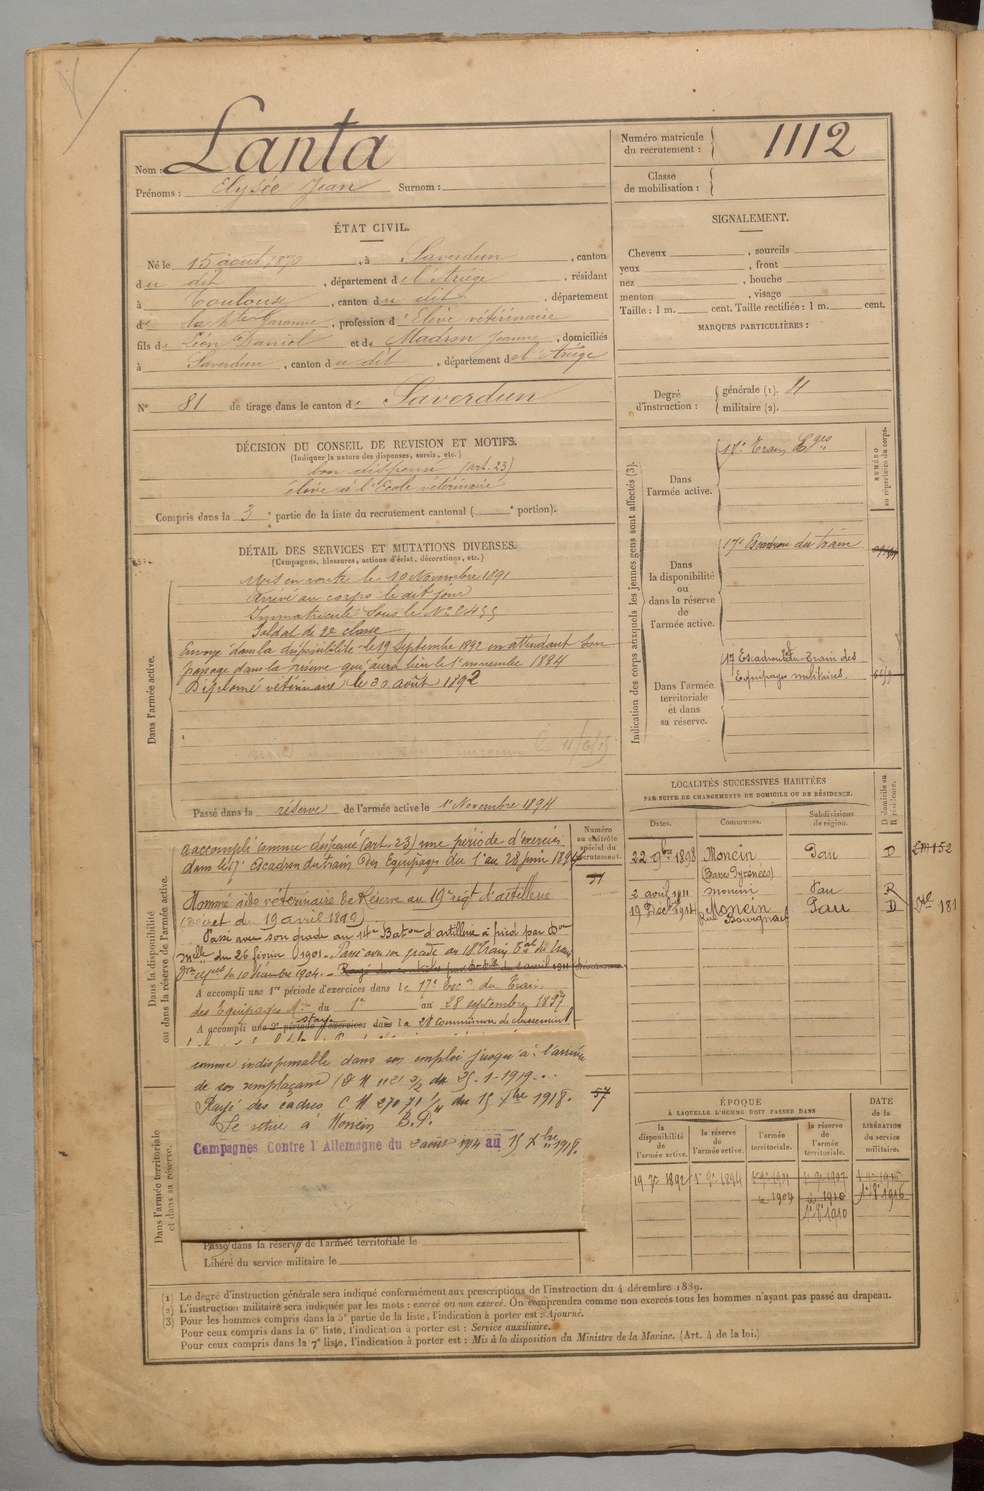 Nom : Lanta
Prénoms : Elysée Jean Surnom :
Numéro matricule du recrutement : 1112
Classe de mobilisation :
ÉTAT CIVIL.
Né le 15 août 1870, à Saverdun, canton
du dit, département de l'Ariège, résidant
à Toulouse, canton du dit, département
de la Hte Garonne, profession d'Elève vétérinaire
fils de Léon Daniel et de Madron Jeanne, domiciliés
à Saverdun, canton du dit, département de l'Ariège
N° 81 de tirage dans le canton de Saverdun
SIGNALEMENT.
Cheveux , sourcils
yeux , front
nez , bouche
menton , visage
Taille : 1 m. cent. Taille rectifiée : 1 m. cent.
MARQUES PARTICULIÈRES :
Degré d'instruction : générale (1). 11
militaire (2).
DÉCISION DU CONSEIL DE REVISION ET MOTIFS.
(Indiquer la nature des dispenses, sursis, etc.)
bon dispensé (art. 23)
élève à l'Ecole vétérinaire
Compris dans la 3e partie de la liste du recrutement cantonal ( e portion).
DÉTAIL DES SERVICES ET MUTATIONS DIVERSES.
(Campagnes, blessures, actions d'éclat, décorations, etc.)
Dans l'armée active.
Mis en route le 10 Novembre 1891
Arrivé au corps le dit jour
Immatriculé sous le No
Soldat de 2e classe
Envoyé dans la disponibilité le 19 Septembre 1892 en attendant son
passage dans la réserve qui aura lieu le 1er novembre 1894
Diplomé vétérinaire le 30 août 1892
Passé dans la réserve de l'armée active le 1er Novembre 1894
Dans la disponibilité ou dans la réserve de l'armée active.
a accompli comme dispensé (art. 23) une période d'exercices
dans le 17e Escadron du train des Equipages du 1er au 28 juin 1894
Nommé aide vétérinaire de Réserve au 19e régt d'artillerie
(Décret du 19 avril 1899)
Passé avec son grade au 14e Baton d'artillerie à pied par Don
melle du 26 février 1901. Passé avec son grade au 18e Train
du 10 décembre 1904.
A accompli une 1re période d'exercices dans le 17e Escon du Train
des Equipages Mres du 1er au 28 septembre 1897
A accompli une 2e période d'exercices dans la
stage
comme indispensable dans son emploi jusqu'à l'arrivée
de son remplaçant du 25-1-1919.
Rayé des cadres C M 27071 du 15 Xbre 1918.
Se retire à Monein B.P.
Campagnes Contre l'Allemagne du 2 août 1914 au 15 Xbre 1918.
Dans l'armée territoriale et dans sa réserve.
Passé dans la réserve de l'armée territoriale le
Libéré du service militaire le
Numéro au contrôle spécial du recrutement.
57
Indication des corps auxquels les jeunes gens sont affectés (3).
NUMÉRO au répertoire du corps.
Dans l'armée active. 17e Train Eqges
Dans la disponibilité ou dans la réserve de l'armée active. 17e Escadron du train
Dans l'armée territoriale et dans sa réserve. 17e Escadron du Train des
Equipages militaires
LOCALITÉS SUCCESSIVES HABITÉES
PAR SUITE DE CHANGEMENTS DE DOMICILE OU DE RÉSIDENCE.
Dates. Communes. Subdivisions de région. D domicile ou R résidence.
22 9bre 1898 Monein Pau D
(Basses Pyrénées)
2 avril 1911 monein Pau R
19 Décbre 1914 Monein Pau D 181
ÉPOQUE
À LAQUELLE L'HOMME DOIT PASSER DANS
la disponibilité de l'armée active. la réserve de l'armée active. l'armée territoriale. la réserve de l'armée territoriale.
DATE de la LIBÉRATION du service militaire.
19 7e 1892
1904
1910
1er 8e 1910
1er 8e 1916
(1) Le degré d'instruction générale sera indiqué conformément aux prescriptions de l'instruction du 4 décembre 1889.
(2) L'instruction militaire sera indiquée par les mots : exercé ou non exercé. On comprendra comme non exercés tous les hommes n'ayant pas passé au drapeau.
(3) Pour les hommes compris dans la 5e partie de la liste, l'indication à porter est : Ajourné.
Pour ceux compris dans la 6e liste, l'indication à porter est : Service auxiliaire.
Pour ceux compris dans la 7e liste, l'indication à porter est : Mis à la disposition du Ministre de la Marine. (Art. 4 de la loi.)